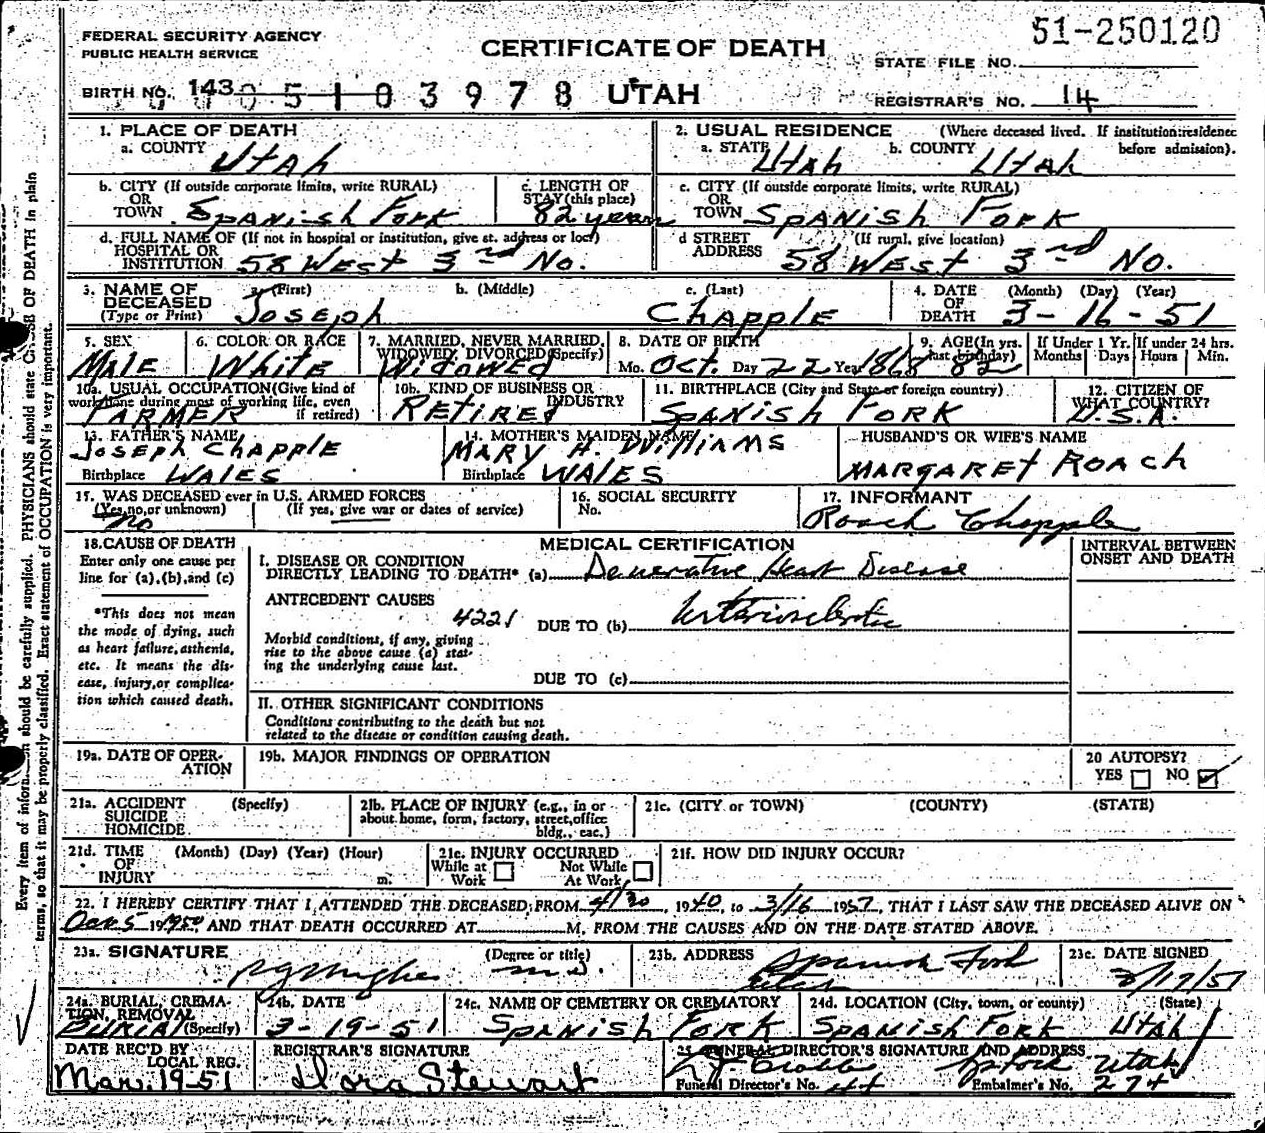 51-250120
FEDERAL SECURITY AGENCY
PUBLIC HEALTH SERVICE
CERTIFICATE OF DEATH
STATE FILE NO.
BIRTH NO. 143 0 5 1 0 3 9 7 8 UTAH
REGISTRAR'S NO. 14
1. PLACE OF DEATH
a. COUNTY Utah
2. USUAL RESIDENCE (Where deceased lived. If institution:residence before admission).
a. STATE Utah b. COUNTY Utah
b. CITY (If outside corporate limits, write RURAL)
OR
TOWN Spanish Fork
c. LENGTH OF
STAY (this place)
82 years
c. CITY (If outside corporate limits, write RURAL)
OR
TOWN Spanish Fork
d. FULL NAME OF (If not in hospital or institution, give st. address or loc.)
HOSPITAL OR
INSTITUTION 58 West 3rd No.
d STREET (If rural, give location)
ADDRESS 58 West 3rd No.
3. NAME OF DECEASED
(Type or Print)
a. (First) b. (Middle) c. (Last)
Joseph Chapple
4. DATE OF DEATH (Month) (Day) (Year)
3-16-51
5. SEX
Male
6. COLOR OR RACE
White
7. MARRIED, NEVER MARRIED,
WIDOWED, DIVORCED (Specify)
Widowed
8. DATE OF BIRTH
Mo. Oct. Day 22 Year 1868
9. AGE (In yrs.
last birthday)
82
If Under 1 Yr.
Months Days
If under 24 hrs.
Hours Min.
10a. USUAL OCCUPATION (Give kind of
work done during most of working life, even
if retired)
Farmer
10b. KIND OF BUSINESS OR
INDUSTRY
Retired
11. BIRTHPLACE (City and State or foreign country)
Spanish Fork
12. CITIZEN OF
WHAT COUNTRY?
U.S.A.
13. FATHER'S NAME
Joseph Chapple
Birthplace Wales
14. MOTHER'S MAIDEN NAME
Mary H. Williams
Birthplace Wales
HUSBAND'S OR WIFE'S NAME
Margaret Roach
15. WAS DECEASED ever in U.S. ARMED FORCES
(Yes, no, or unknown) (If yes, give war or dates of service)
no
16. SOCIAL SECURITY
No.
17. INFORMANT
Roach Chapple
18. CAUSE OF DEATH
Enter only one cause per
line for (a), (b), and (c)
*This does not mean
the mode of dying, such
as heart failure, asthenia,
etc. It means the dis-
ease, injury, or complica-
tion which caused death.
MEDICAL CERTIFICATION
INTERVAL BETWEEN
ONSET AND DEATH
I. DISEASE OR CONDITION
DIRECTLY LEADING TO DEATH* (a) Heart Disease
ANTECEDENT CAUSES
4221
DUE TO (b)
Morbid conditions, if any, giving
rise to the above cause (a) stat-
ing the underlying cause last.
DUE TO (c)
II. OTHER SIGNIFICANT CONDITIONS
Conditions contributing to the death but not
related to the disease or condition causing death.
19a. DATE OF OPER-
ATION
19b. MAJOR FINDINGS OF OPERATION
20 AUTOPSY?
YES NO
21a. ACCIDENT (Specify)
SUICIDE
HOMICIDE
21b. PLACE OF INJURY (e.g., in or
about home, form, factory, street, office
bldg., eac.)
21c. (CITY or TOWN) (COUNTY) (STATE)
21d. TIME (Month) (Day) (Year) (Hour)
OF
INJURY m.
21e. INJURY OCCURRED
While at Work Not While At Work
21f. HOW DID INJURY OCCUR?
22. I HEREBY CERTIFY THAT I ATTENDED THE DECEASED FROM 4/30, 1940, to 3/16 1951, THAT I LAST SAW THE DECEASED ALIVE ON
Oct 5 1950 AND THAT DEATH OCCURRED AT M, FROM THE CAUSES AND ON THE DATE STATED ABOVE.
23a. SIGNATURE (Degree or title)
M.D.
23b. ADDRESS
Spanish Fork
Utah
23c. DATE SIGNED
3/17/51
24a. BURIAL, CREMA-
TION, REMOVAL
(Specify)
Burial
24b. DATE
3-19-51
24c. NAME OF CEMETERY OR CREMATORY
Spanish Fork
24d. LOCATION (City, town, or county) (State)
Spanish Fork Utah
DATE REC'D BY
LOCAL REG.
Mar. 19-51
REGISTRAR'S SIGNATURE
Dora Stewart
25. FUNERAL DIRECTOR'S SIGNATURE AND ADDRESS
Sp. Fork Utah
Funeral Director's No. 44 Embalmer's No. 274
Every item of information should be carefully supplied. PHYSICIANS should state CAUSE OF DEATH in plain
terms, so that it may be properly classified. Exact statement of OCCUPATION is very important.